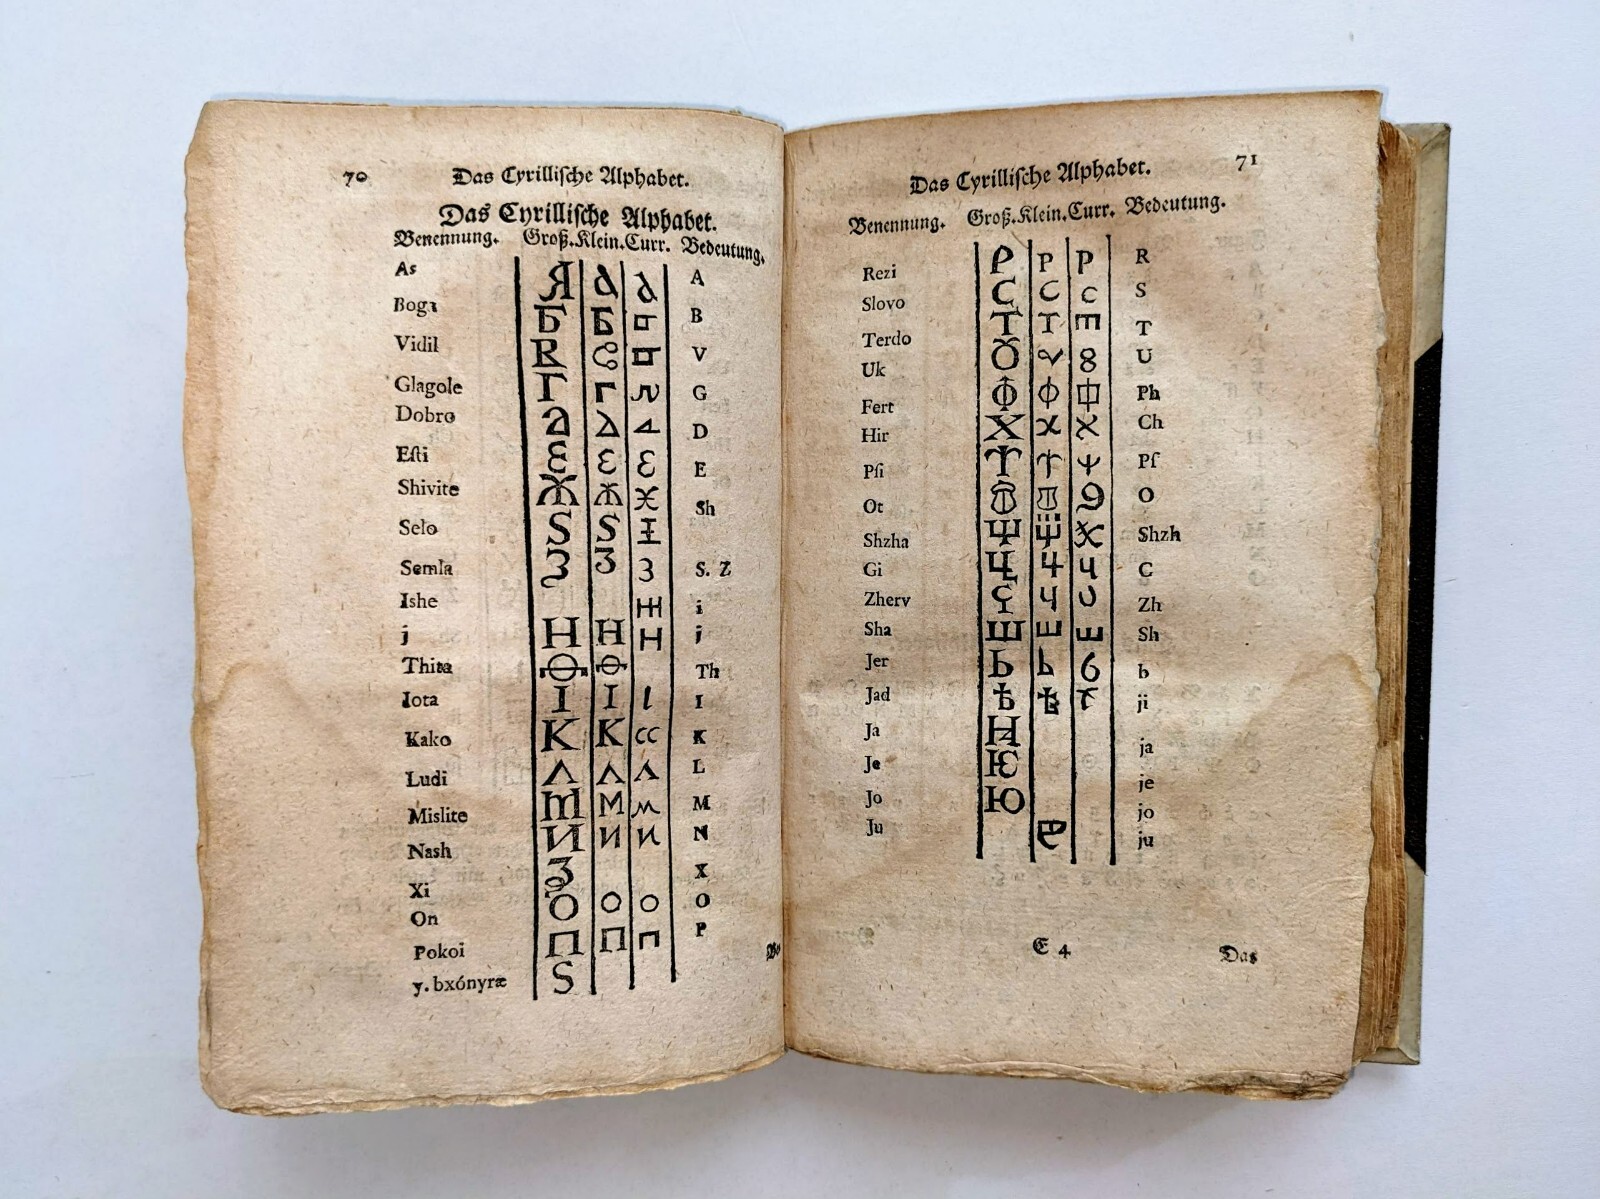 70 Das Cyrillische Alphabet.
Das Cyrillische Alphabet.
Benennung. Groß. Klein. Curr. Bedeutung.
As Я а а A
Boga Б Б B
Vidil В V
Glagole Г г G
Dobro D
Esti Є є є E
Shivite Ж ж Sh
Selo Ѕ Ѕ
Semla З З З S. Z
Ishe i
j Н Н Н j
Thita Ѳ Ѳ Th
Iota І І I
Kako К К K
Ludi Л Л Л L
Mislite М м M
Nash И и и N
Xi X
On О о о O
Pokoi П П п P
y. bxónyræ Ѕ
71
Das Cyrillische Alphabet.
Benennung. Groß. Klein. Curr. Bedeutung.
Rezi Р Р Р R
Slovo С С с S
Terdo Т Т T
Uk U
Fert Ф ф Ph
Hir Х х х Ch
Psi Ps
Ot O
Shzha Shzh
Gi Ч ч C
Zherv Zh
Sha Ш ш ш Sh
Jer Ь ь b
Jad Ѣ ji
Ja ja
Je Ѥ je
Jo Ю jo
Ju ju
E 4 Das